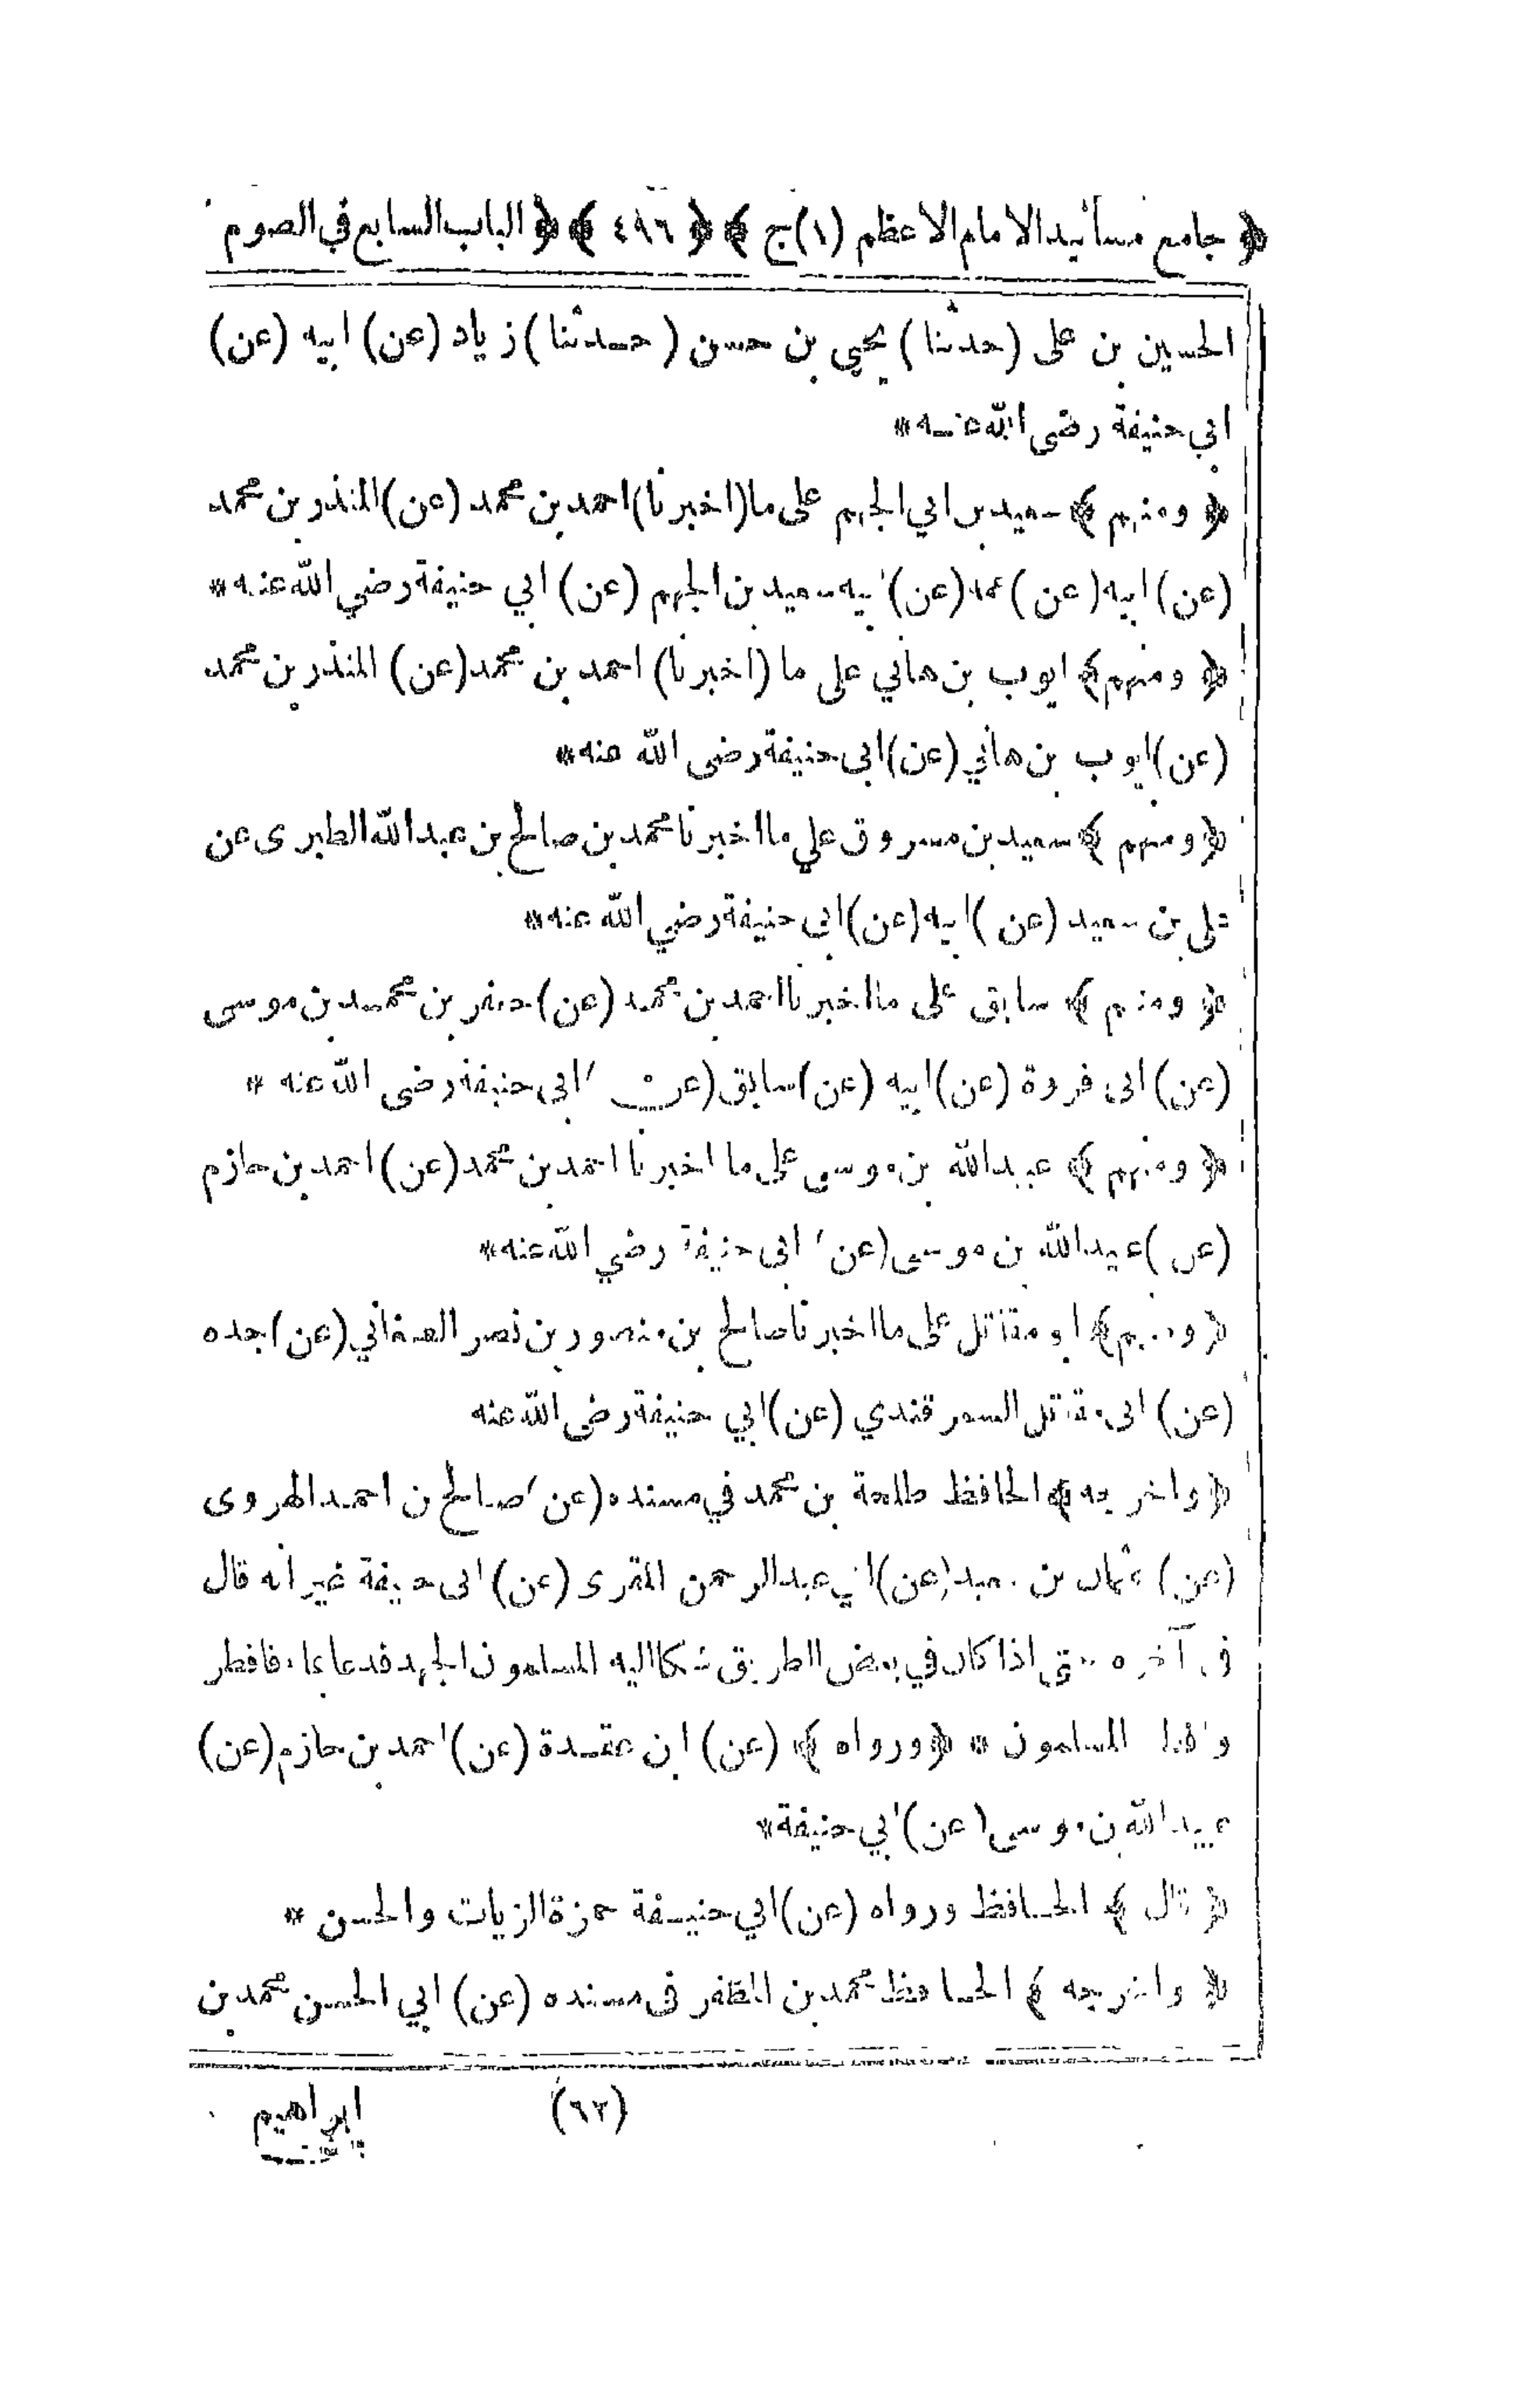 ﴿ جامع مسانيد الامام الاعظم (١) ج ﴾ ﴿ ٤٩٦ ﴾ ﴿ الباب السابع في الصوم
الحسين بن على (حدثنا) يحيى بن حسن (حدثنا) زياد (عن) ابيه (عن)
ابي حنيفة رضى الله عنه *
﴿ ومنهم ﴾ سعيد بن ابي الجهم على ما (اخبرنا) احمد بن محمد (عن) المنذر بن محمد
(عن) ابيه (عن) عمه (عن) ابيه سعيد بن الجهم (عن) ابي حنيفة رضي الله عنه *
﴿ ومنهم ﴾ ايوب بن هاني على ما (اخبرنا) احمد بن محمد (عن) المنذر بن محمد
(عن) ايوب بن هاني (عن) ابى حنيفة رضى الله عنه *
﴿ ومنهم ﴾ سعيد بن مسروق علي ما اخبرنا محمد بن صالح بن عبد الله الطبرى عن
على بن سعيد (عن) ابيه (عن) ابى حنيفة رضي الله عنه *
﴿ ومنهم ﴾ سابق على ما اخبرنا احمد بن محمد (عن) جعفر بن محمد بن موسى
(عن) ابى فروة (عن) ابيه (عن) سابق (عن) ابى حنيفة رضى الله عنه *
﴿ ومنهم ﴾ عبيد الله بن موسى على ما اخبرنا احمد بن محمد (عن) احمد بن حازم
(عن) عبيد الله بن موسى (عن) ابى حنيفة رضي الله عنه *
﴿ ومنهم ﴾ ابو مقاتل على ما اخبرنا صالح بن منصور بن نصر الصغاني (عن) جده
(عن) ابى مقاتل السمرقندي (عن) ابي حنيفة رضى الله عنه
﴿ واخرجه ﴾ الحافظ طلحة بن محمد في مسنده (عن) صالح بن احمد الهروى
(عن) عثمان بن سعيد (عن) ابي عبد الرحمن المقرى (عن) ابى حنيفة غير انه قال
فى آخره حتى اذا كان في بعض الطريق شكا اليه المسلمون الجهد فدعا بماء فافطر
وافطر المسلمون * ﴿ ورواه ﴾ (عن) ابن عقدة (عن) احمد بن حازم (عن)
عبيد الله بن موسى (عن) ابي حنيفة *
﴿ قال ﴾ الحافظ ورواه (عن) ابي حنيفة حمزة الزيات والحسن *
﴿ واخرجه ﴾ الحافظ محمد بن المظفر فى مسنده (عن) ابي الحسن محمد بن
(٦٢) ابراهيم